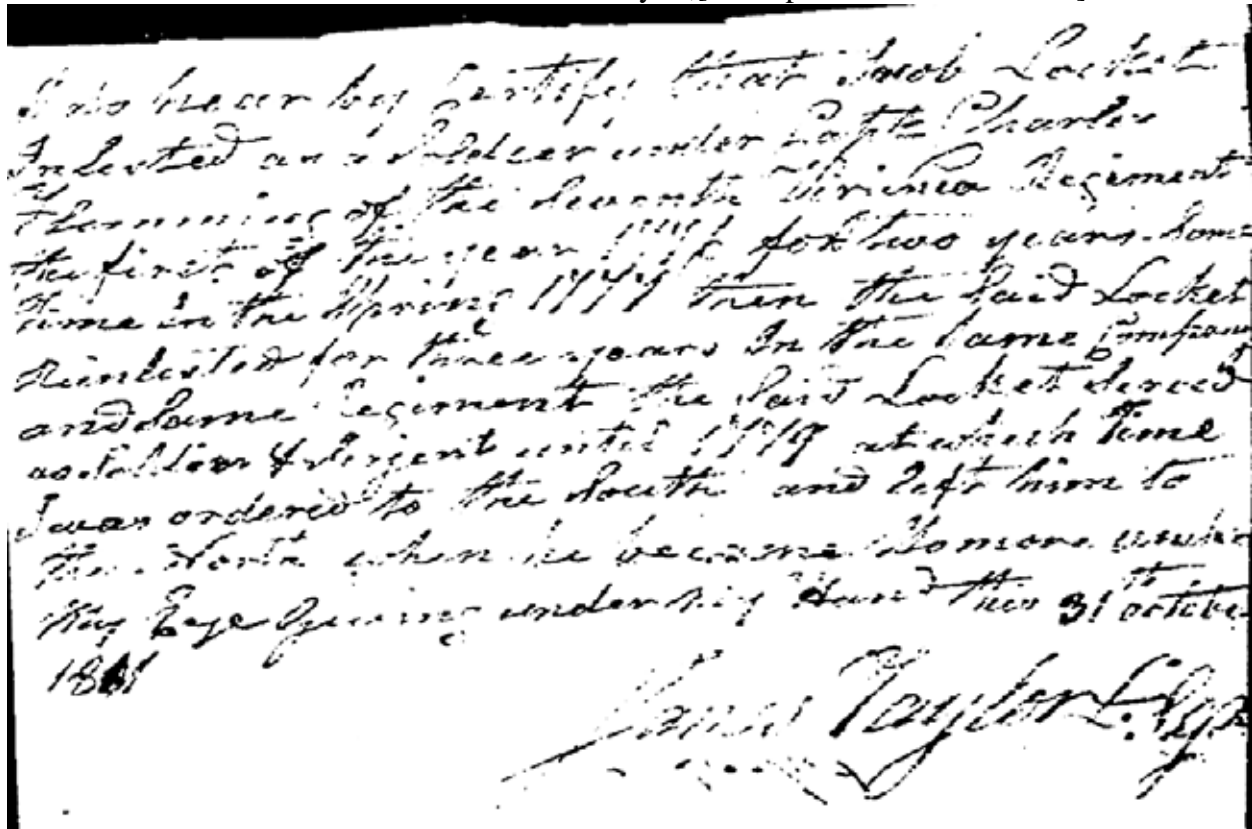 I do hear by Certify that Jacob Locket
Inlisted as a Soldier under Capt. Charles
Flemming of the Seventh Virginia Regiment
the first of the year 1776 for two years. Some
time in the Spring 1777 then the Said Locket
Reinlisted for three years In the Same Company
and Same Regiment the Said Locket Served
as Soldier & Serjent until 1779 at which time
I was ordered to the South and left him to
the North when he became No more under
my Eye Given under my Hand this 31st october
1811
Taylor